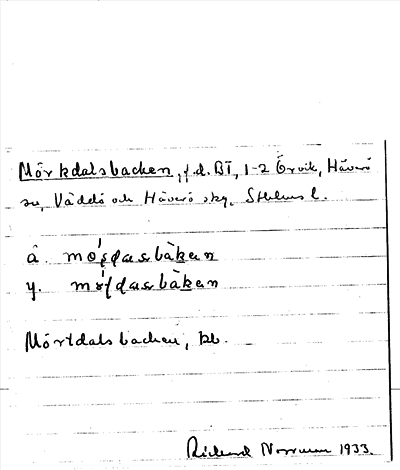 Mörkdalsbacken, f.d. BT, 1-2 Örvik, Häverö
sn, Väddö och Häverö skg, Sthlms l.
â. mo̜ṣḍasbàkan
y. mo̜ḷdasbàkan
Mörtdalsbacken, kb.
Rickard Norrman 1933.